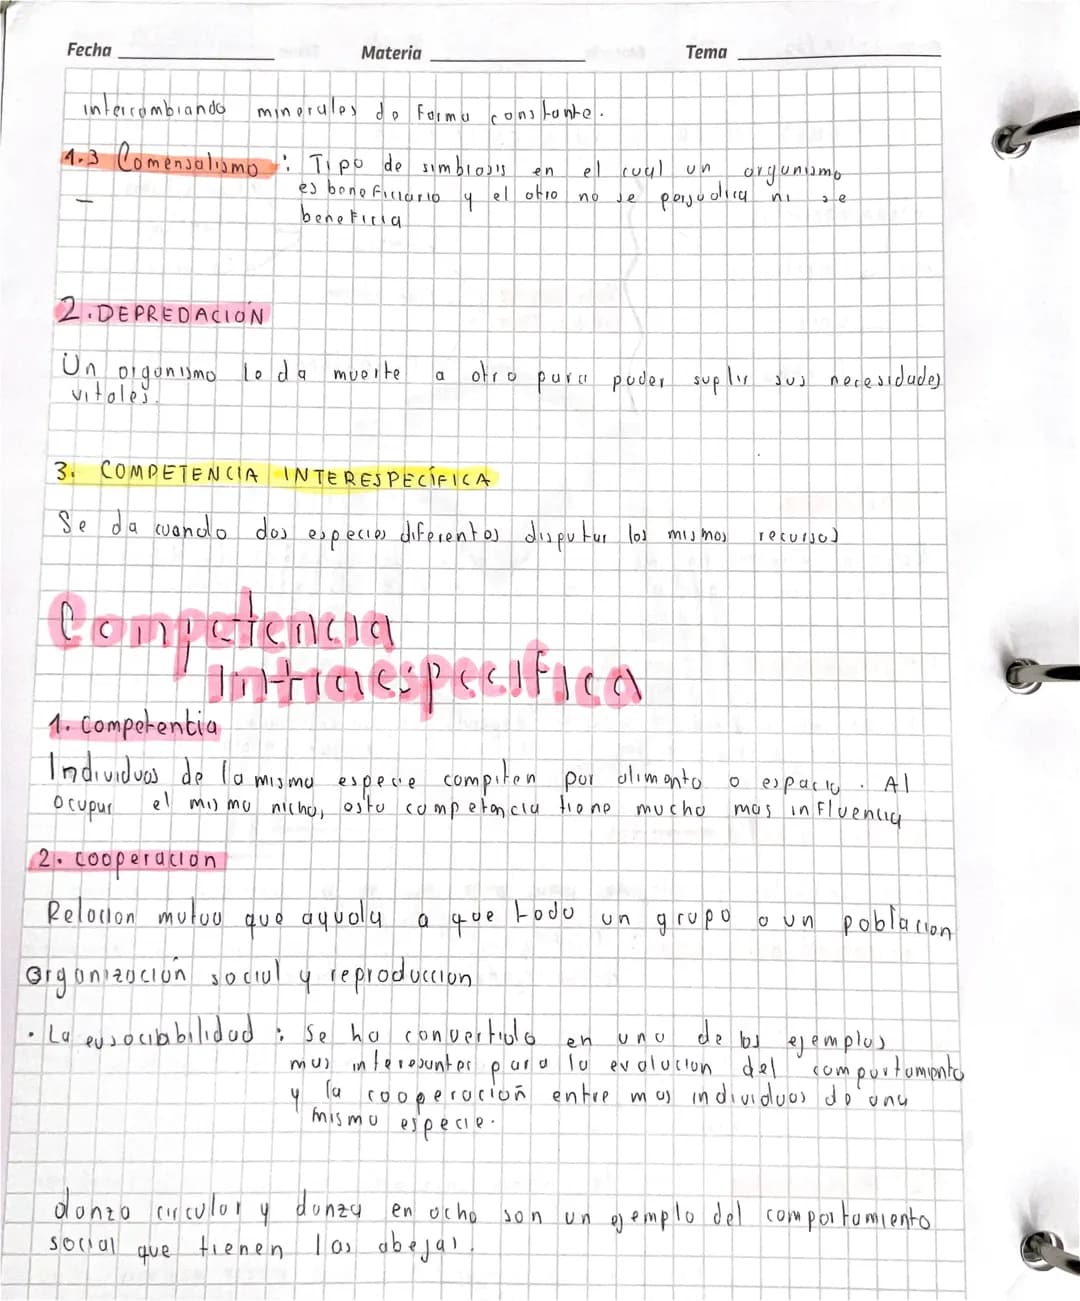 Fecha Materia Tema
intercambiando minerales de forma constante.
1.3 Comensalismo : Tipo de simbiosis en el cual un organismo
es beneficiario y el otro no se perjudica ni se
beneficia
2. DEPREDACIÓN
Un organismo le da muerte a otro para poder suplir sus necesidades
vitales.
3. COMPETENCIA INTERESPECÍFICA
Se da cuando dos especies diferentes disputan los mismos recursos
Competencia
intraespecifica
1. Competencia
Individuos de la misma especie compiten por alimento o espacio. Al
ocupar el mismo nicho, esta competencia tiene mucho mas influencia
2. cooperacion
Relacion mutua que ayuda a que todo un grupo o un poblacion
Organización social y reproduccion
• La eusociabilidad : Se ha convertido en uno de los ejemplos
mas interesantes para la evolucion del comportamiento
y la cooperación entre mas individuos de una
mismo especie.
danza circular y danza en ocho son un ejemplo del comportamiento
social que tienen las abejas.